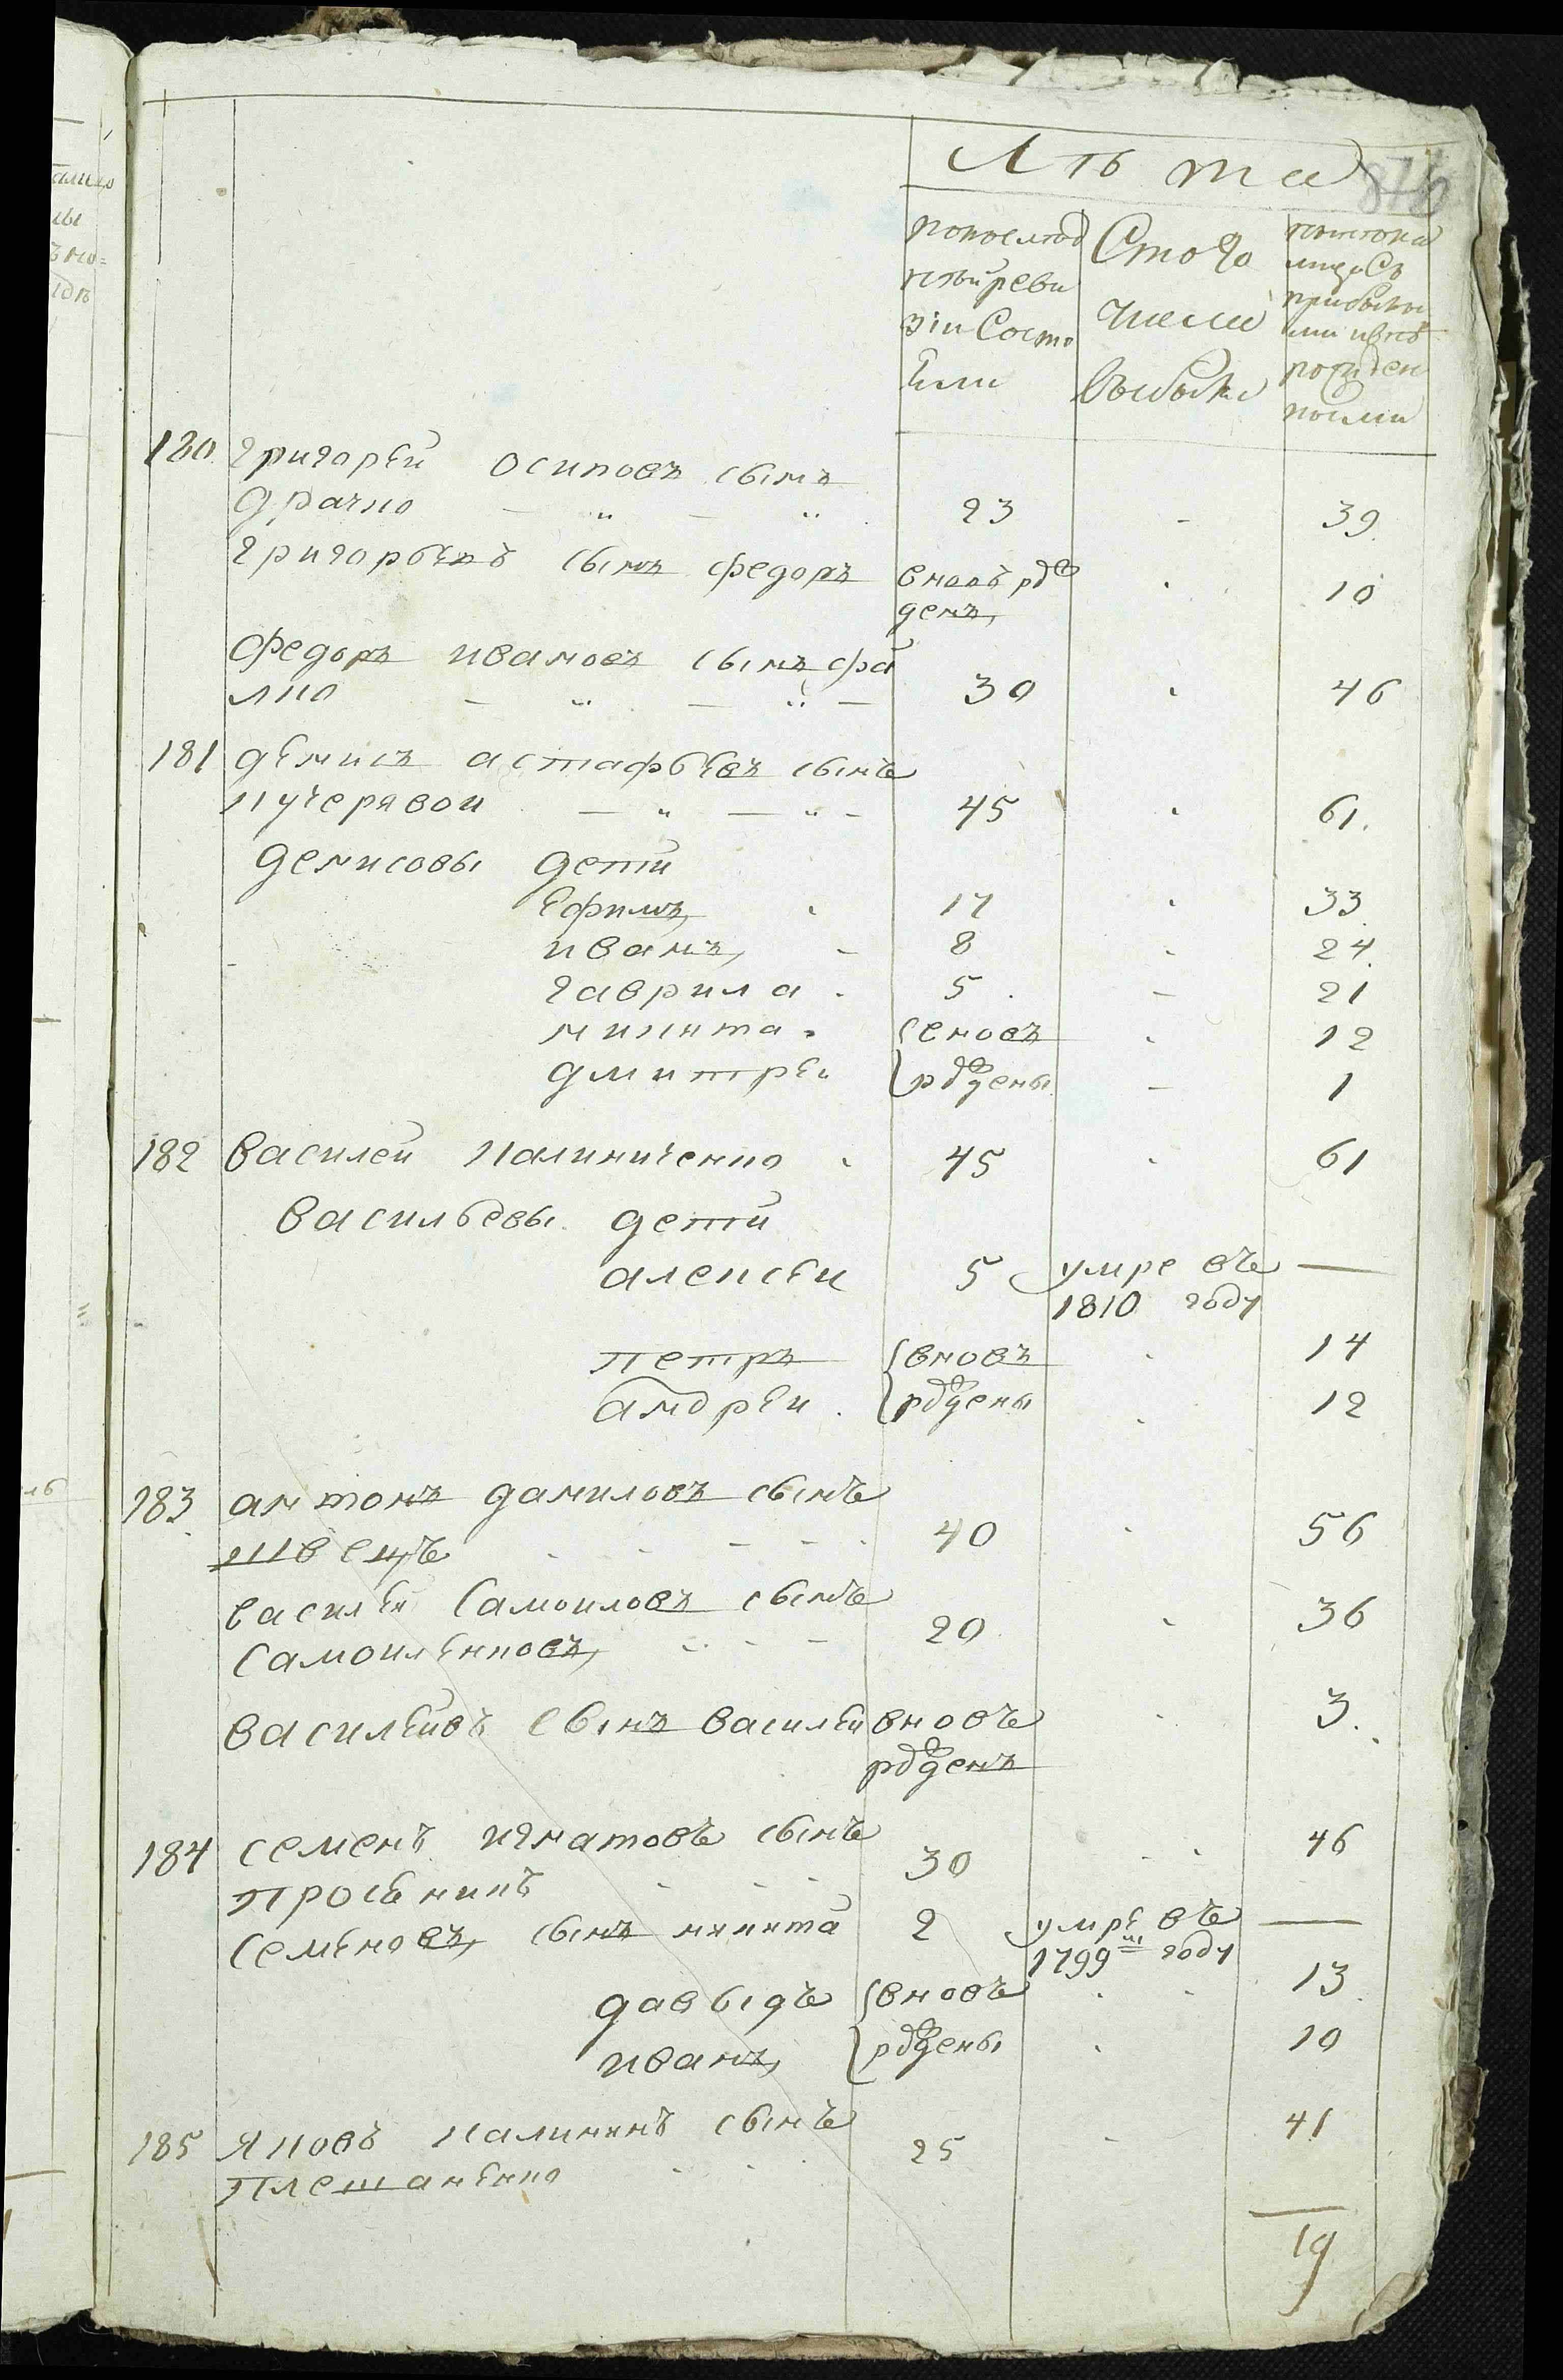 Лѣта
по послѣд
нѣй реви
зіи Состо
ѣли
Стого
числа
выбыло
ныне на
лицо Съ
прибылы
ми и внѣ
рожден
ными
180 григорей осиповъ сынъ
драчко 23 39
григорьевъ сынъ федоръ вновъ рож
денъ 10
федоръ ивановъ сынъ фа
лко 30 46
181 денисъ астафьевъ сынъ
кучерявои 45 61
денисовы дети
Ефимъ 17 33
иванъ 8 24
гаврила 5 21
никита вновъ 12
дмитреи рождены 1
182 василеи калиниченко 45 61
васильевы дети
алексеи 5 умре въ —
1810 году
петръ вновъ 14
андреи рождены 12
183 антонъ даниловъ сынъ
швецъ 40 56
василеи Самоиловъ сынъ
Самоиленковъ 20 36
василеивъ сынъ василеи вновъ 3
рожденъ
184 семенъ игнатовъ сынъ
просеникъ 30 46
семеновъ сынъ никита 2 умре въ —
1799м году
давыдъ вновъ 13
иванъ рождены 10
185 Яковъ калининъ сынъ
плешаненко 25 41
19